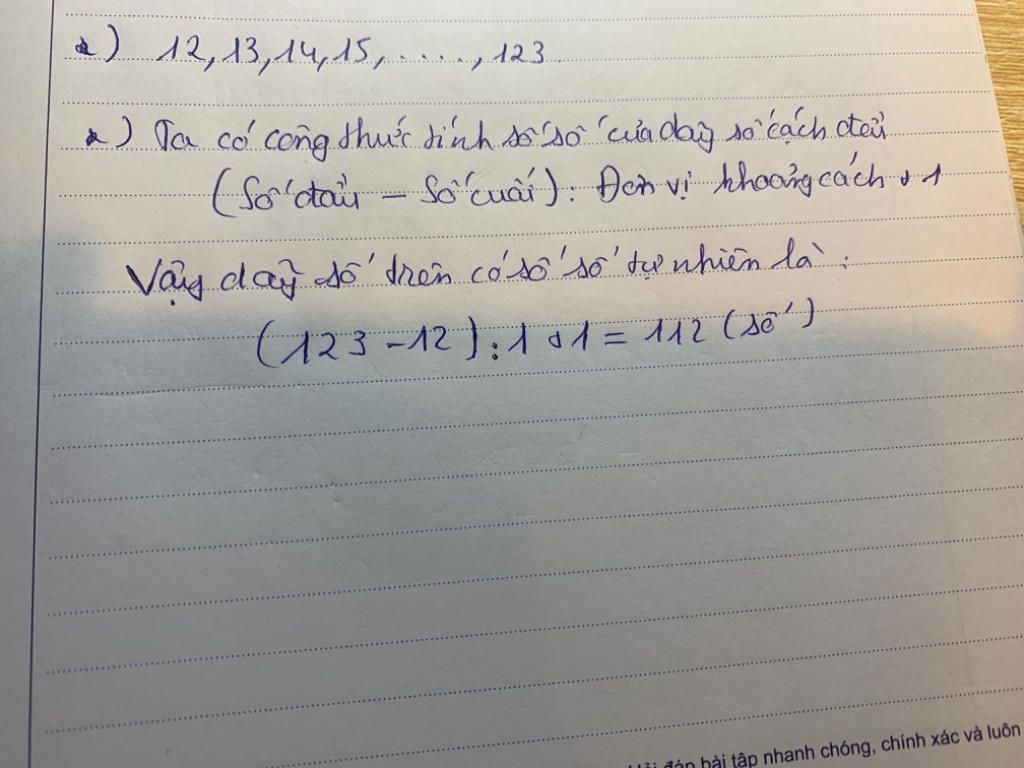 a) 12, 13, 14, 15, ...., 123.
a) Ta có công thức tính số số của dãy số cách đều
(Số đầu - Số cuối) : Đơn vị khoảng cách + 1
Vậy dãy số trên có số số tự nhiên là:
(123 - 12) : 1 + 1 = 112 (số)
đáp bài tập nhanh chóng, chính xác và luôn